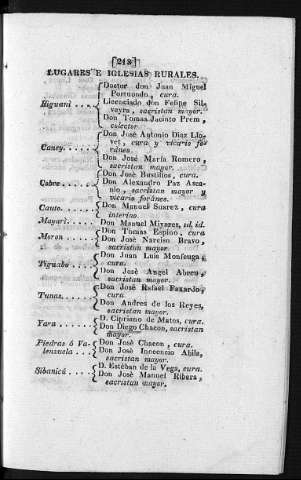 [213]
LUGARES E IGLESIAS RURALES.
Doctor don Juan Miguel
Portuondo, cura.
Jiguaní . . . Licenciado don Felipe Sil-
veyra, sacristan mayor.
Don Tomas Jacinto Prem,
colector.
Don José Antonio Diaz Llo-
vet, cura y vicario fo-
Caney. . . . ráneo.
Don José María Romero,
sacristan mayor.
Don José Bustillos, cura.
Cobre. . . . Don Alexandro Paz Asca-
nio, sacristan mayor y
vicario foráneo.
Cauto. . . . Don Manuel Suarez, cura
interino.
Mayarí. . . . Don Manuel Miyares, id. id.
Moron . . . . Don Tomas Espino, cura
Don José Narciso Bravo,
sacristan mayor.
Don Juan Luis
Tiguabo . . cura.
Don José Angel Abreu,
sacristan mayor.
Don José Rafael Faxardo,
Tunas. . . . cura
Don Andres de los Reyes,
sacristan mayor.
D. Cipriano de Matos, cura.
Yara . . . . . Don Diego Chacon, sacristan
mayor.
Piedras ó Va- Don José Chacon, cura.
lenzuela . . . Don José Inocencio Abila,
sacristan mayor.
D. Estéban de la Vega, cura.
Sibanicú . . Don José Manuel Ribera,
sacristan mayor.